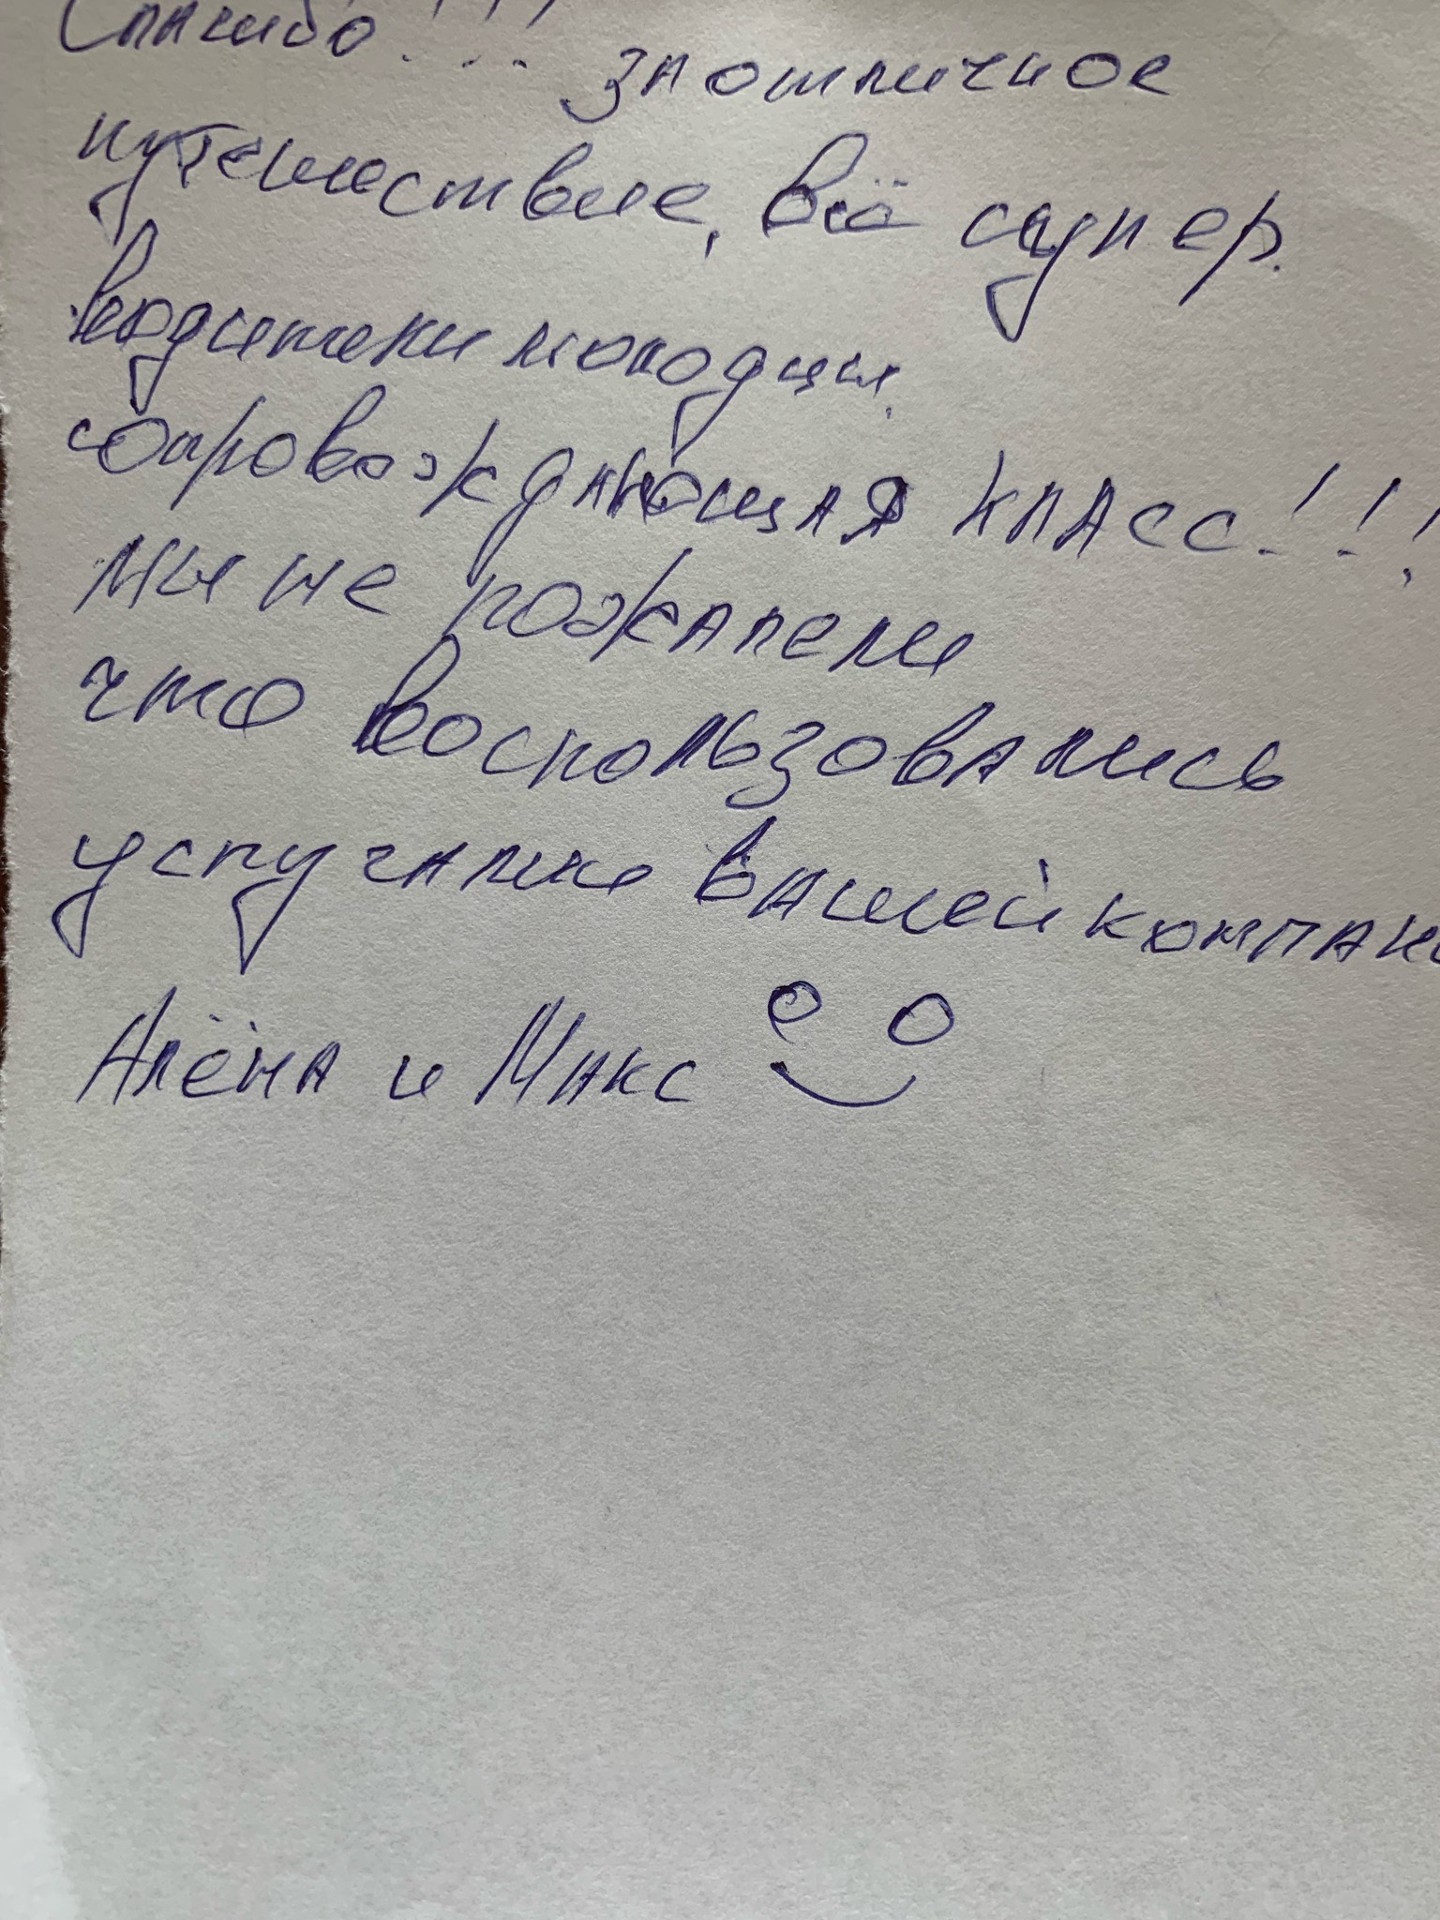 Спасибо!!! за отличное
путешествие, всё супер.
водители молодцы,
сопровождающая класс!!!
мы не пожалели
что воспользовались
услугами вашей компан
Алёна и Макс